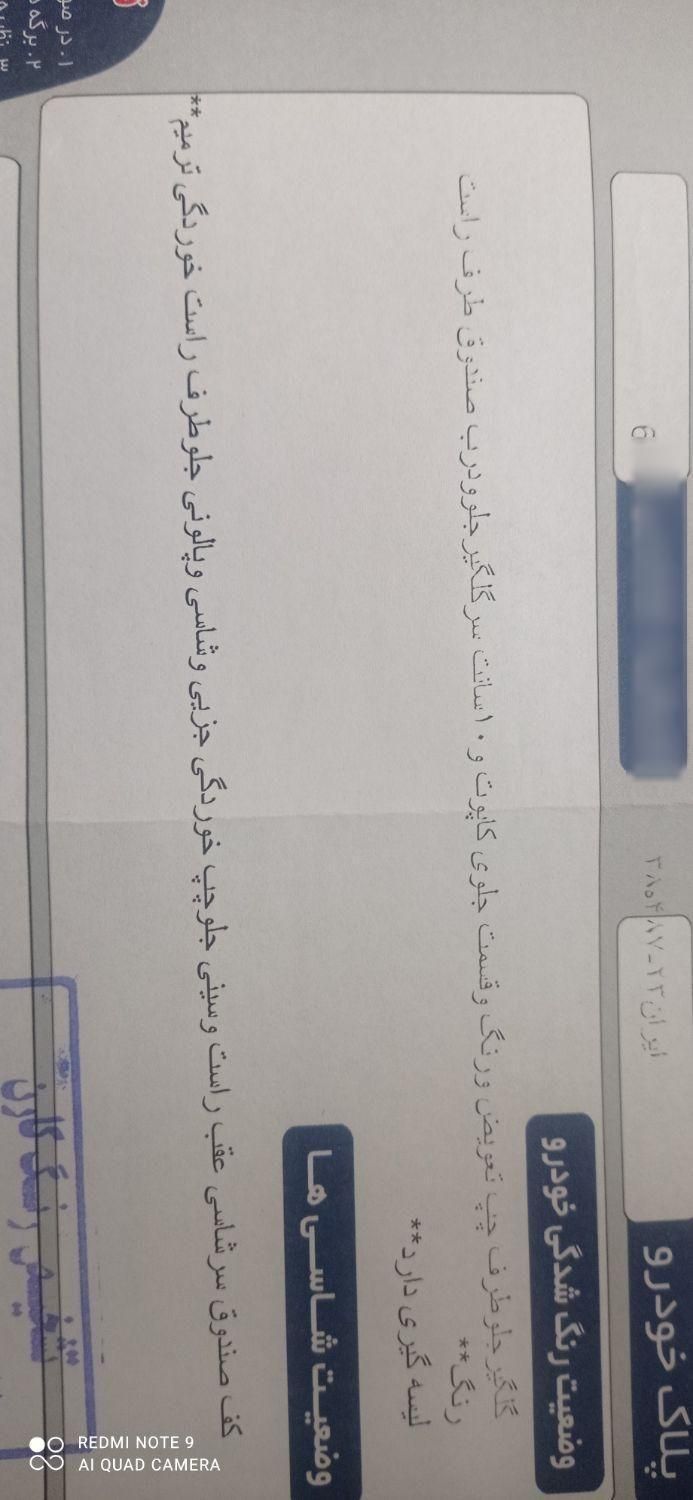 پلاک خودرو
ایران ۲۳-
6
وضعیت رنگ شدگی خودرو
گلگیر جلو طرف چپ تعویض ورنگ وقسمت جلوی کاپوت و ۱۰سانت سر گلگیر جلو ودرب صندوق طرف راست
رنگ**
لیسه گیری دارد**
وضعیت شاسی ها
کف صندوق سر شاسی عقب راست وسینی جلو چپ خوردگی جزیی وشاسی وپالونی جلو طرف راست خوردگی ترمیم**
تشخیص رنگ کارن
۱. در
۲. برگه
۳.
REDMI NOTE 9
AI QUAD CAMERA